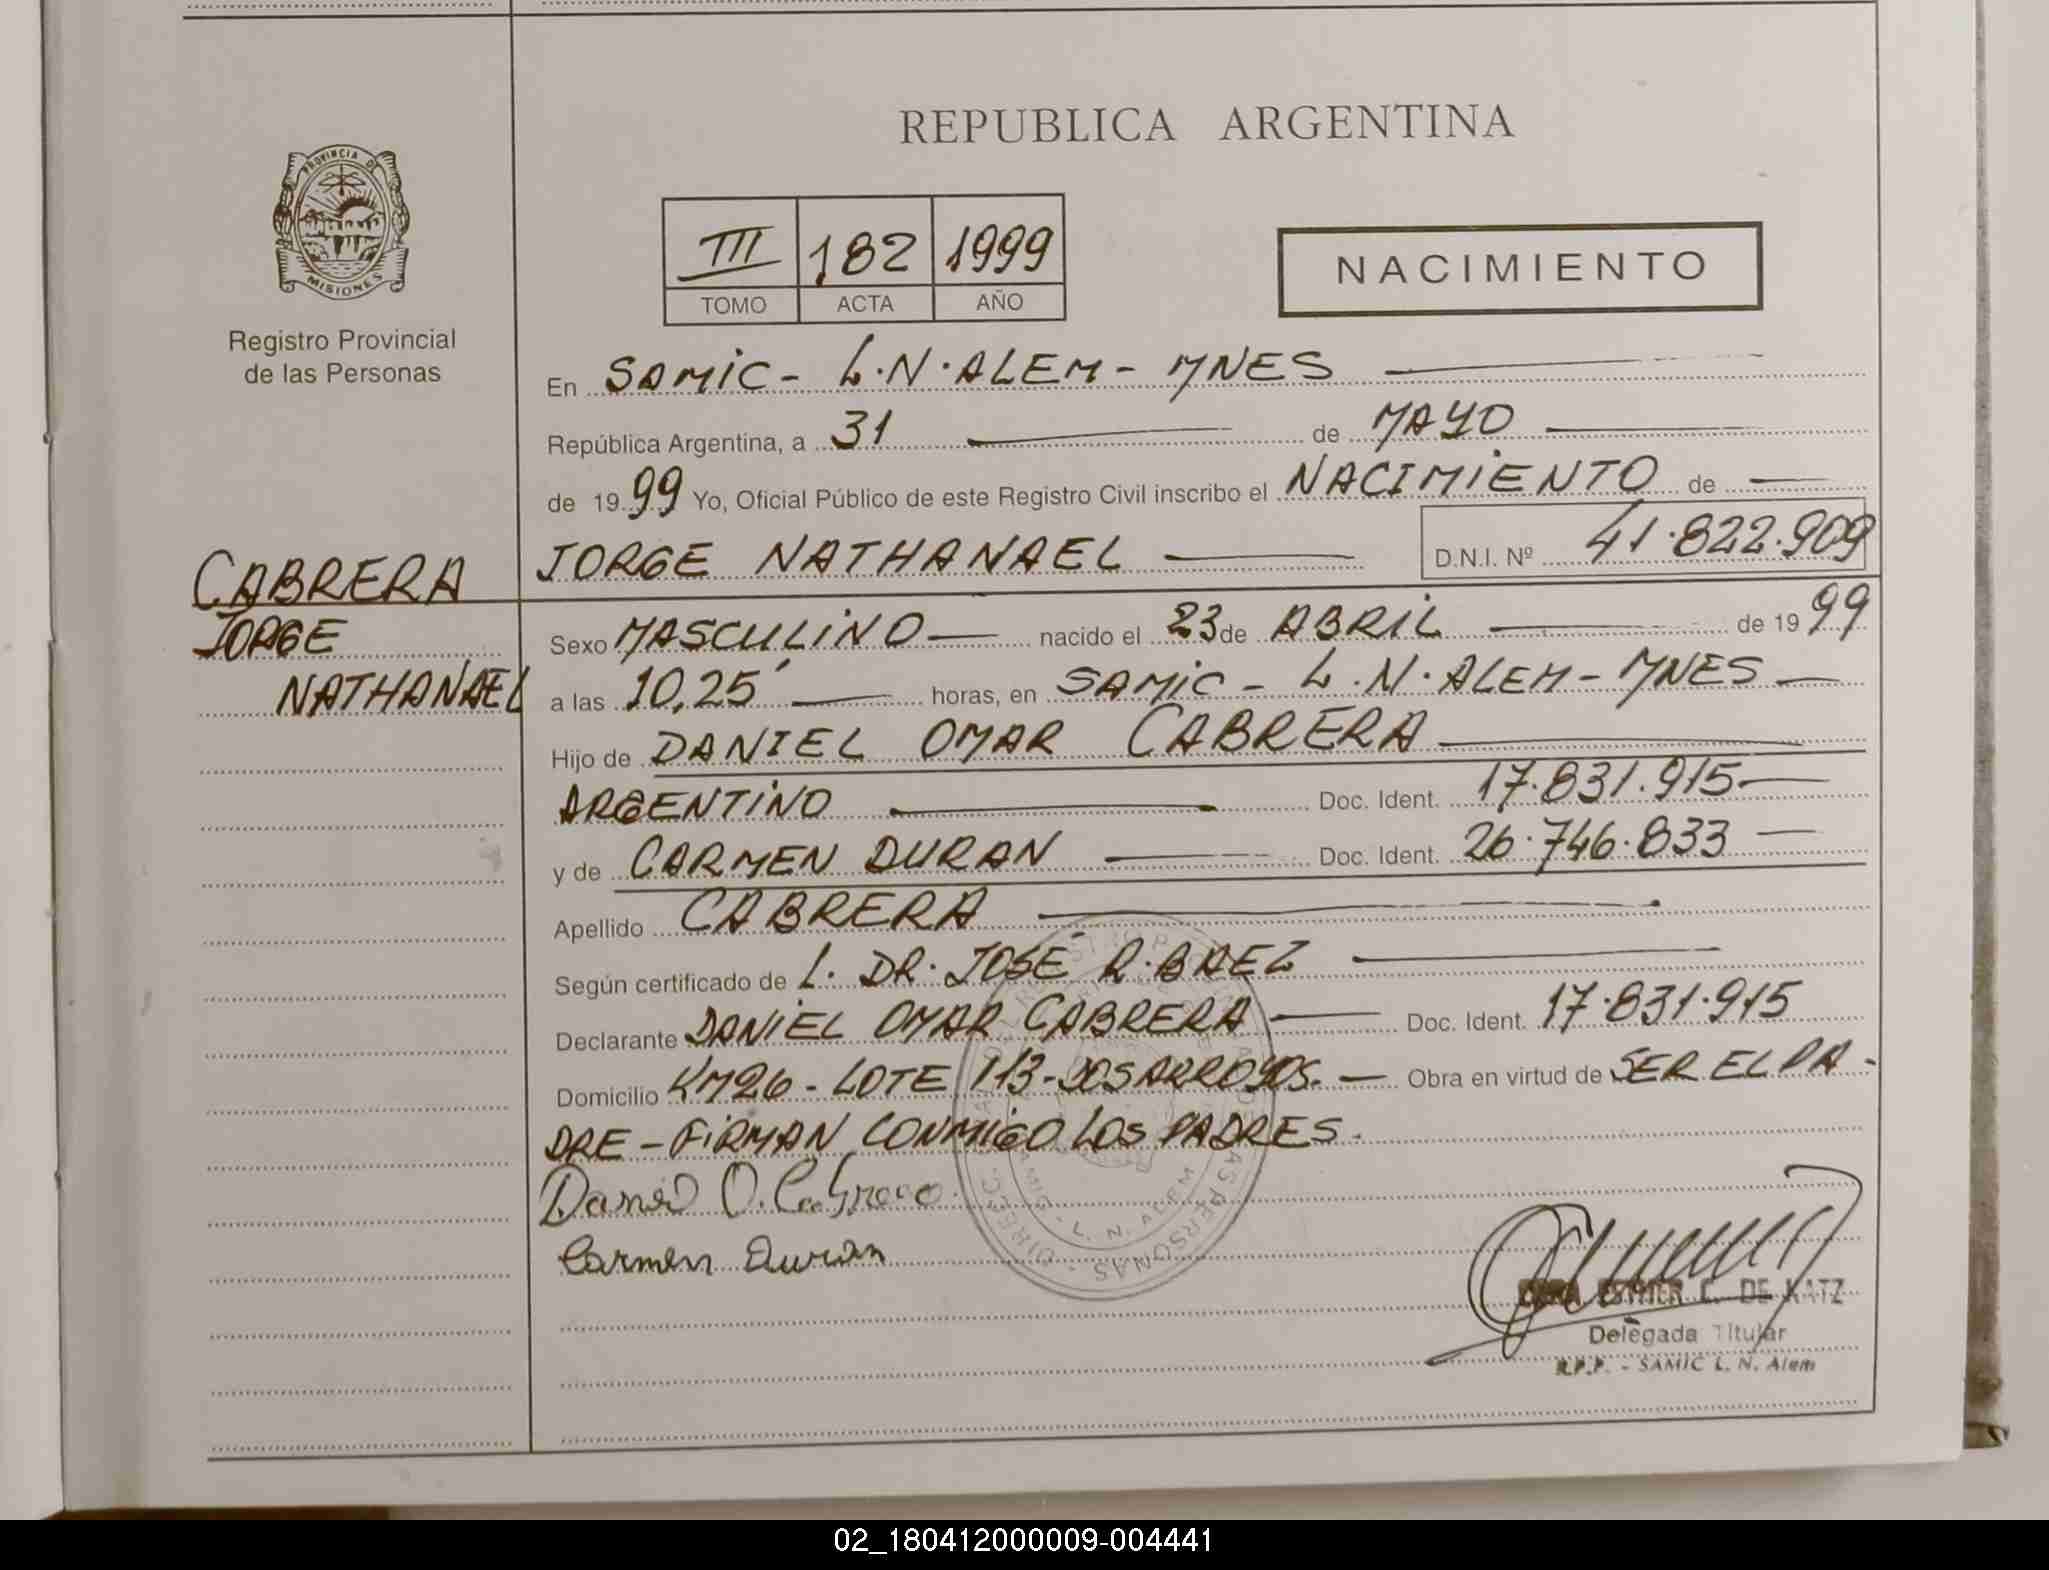 PROVINCIA DE
MISIONES
Registro Provincial
de las Personas
CABRERA
JORGE
NATHANAEL
REPUBLICA ARGENTINA
III 182 1999
TOMO ACTA AÑO
NACIMIENTO
En SAMIC - L.N. ALEM - MNES
República Argentina, a 31 de MAYO
de 1999 Yo, Oficial Público de este Registro Civil inscribo el NACIMIENTO de
JORGE NATHANAEL D.N.I. Nº 41.822.909
Sexo MASCULINO nacido el 23 de ABRIL de 1999
a las 10,25' horas, en SAMIC - L.N. ALEM - MNES
Hijo de DANIEL OMAR CABRERA
ARGENTINO Doc. Ident. 17.831.915
y de CARMEN DURAN Doc. Ident. 26.746.833
Apellido CABRERA
Según certificado de L. DR. JOSÉ R. BAEZ
Declarante DANIEL OMAR CABRERA Doc. Ident. 17.831.915
Domicilio KM26 - LOTE 113 - DOS ARROYOS. Obra en virtud de SER EL PA-
DRE - FIRMAN CONMIGO LOS PADRES.
Daniel O. Cabrera
Carmen Duran
ESTHER C. DE KATZ
Delegada Titular
R.P.P. - SAMIC L. N. Alem
02_180412000009-004441